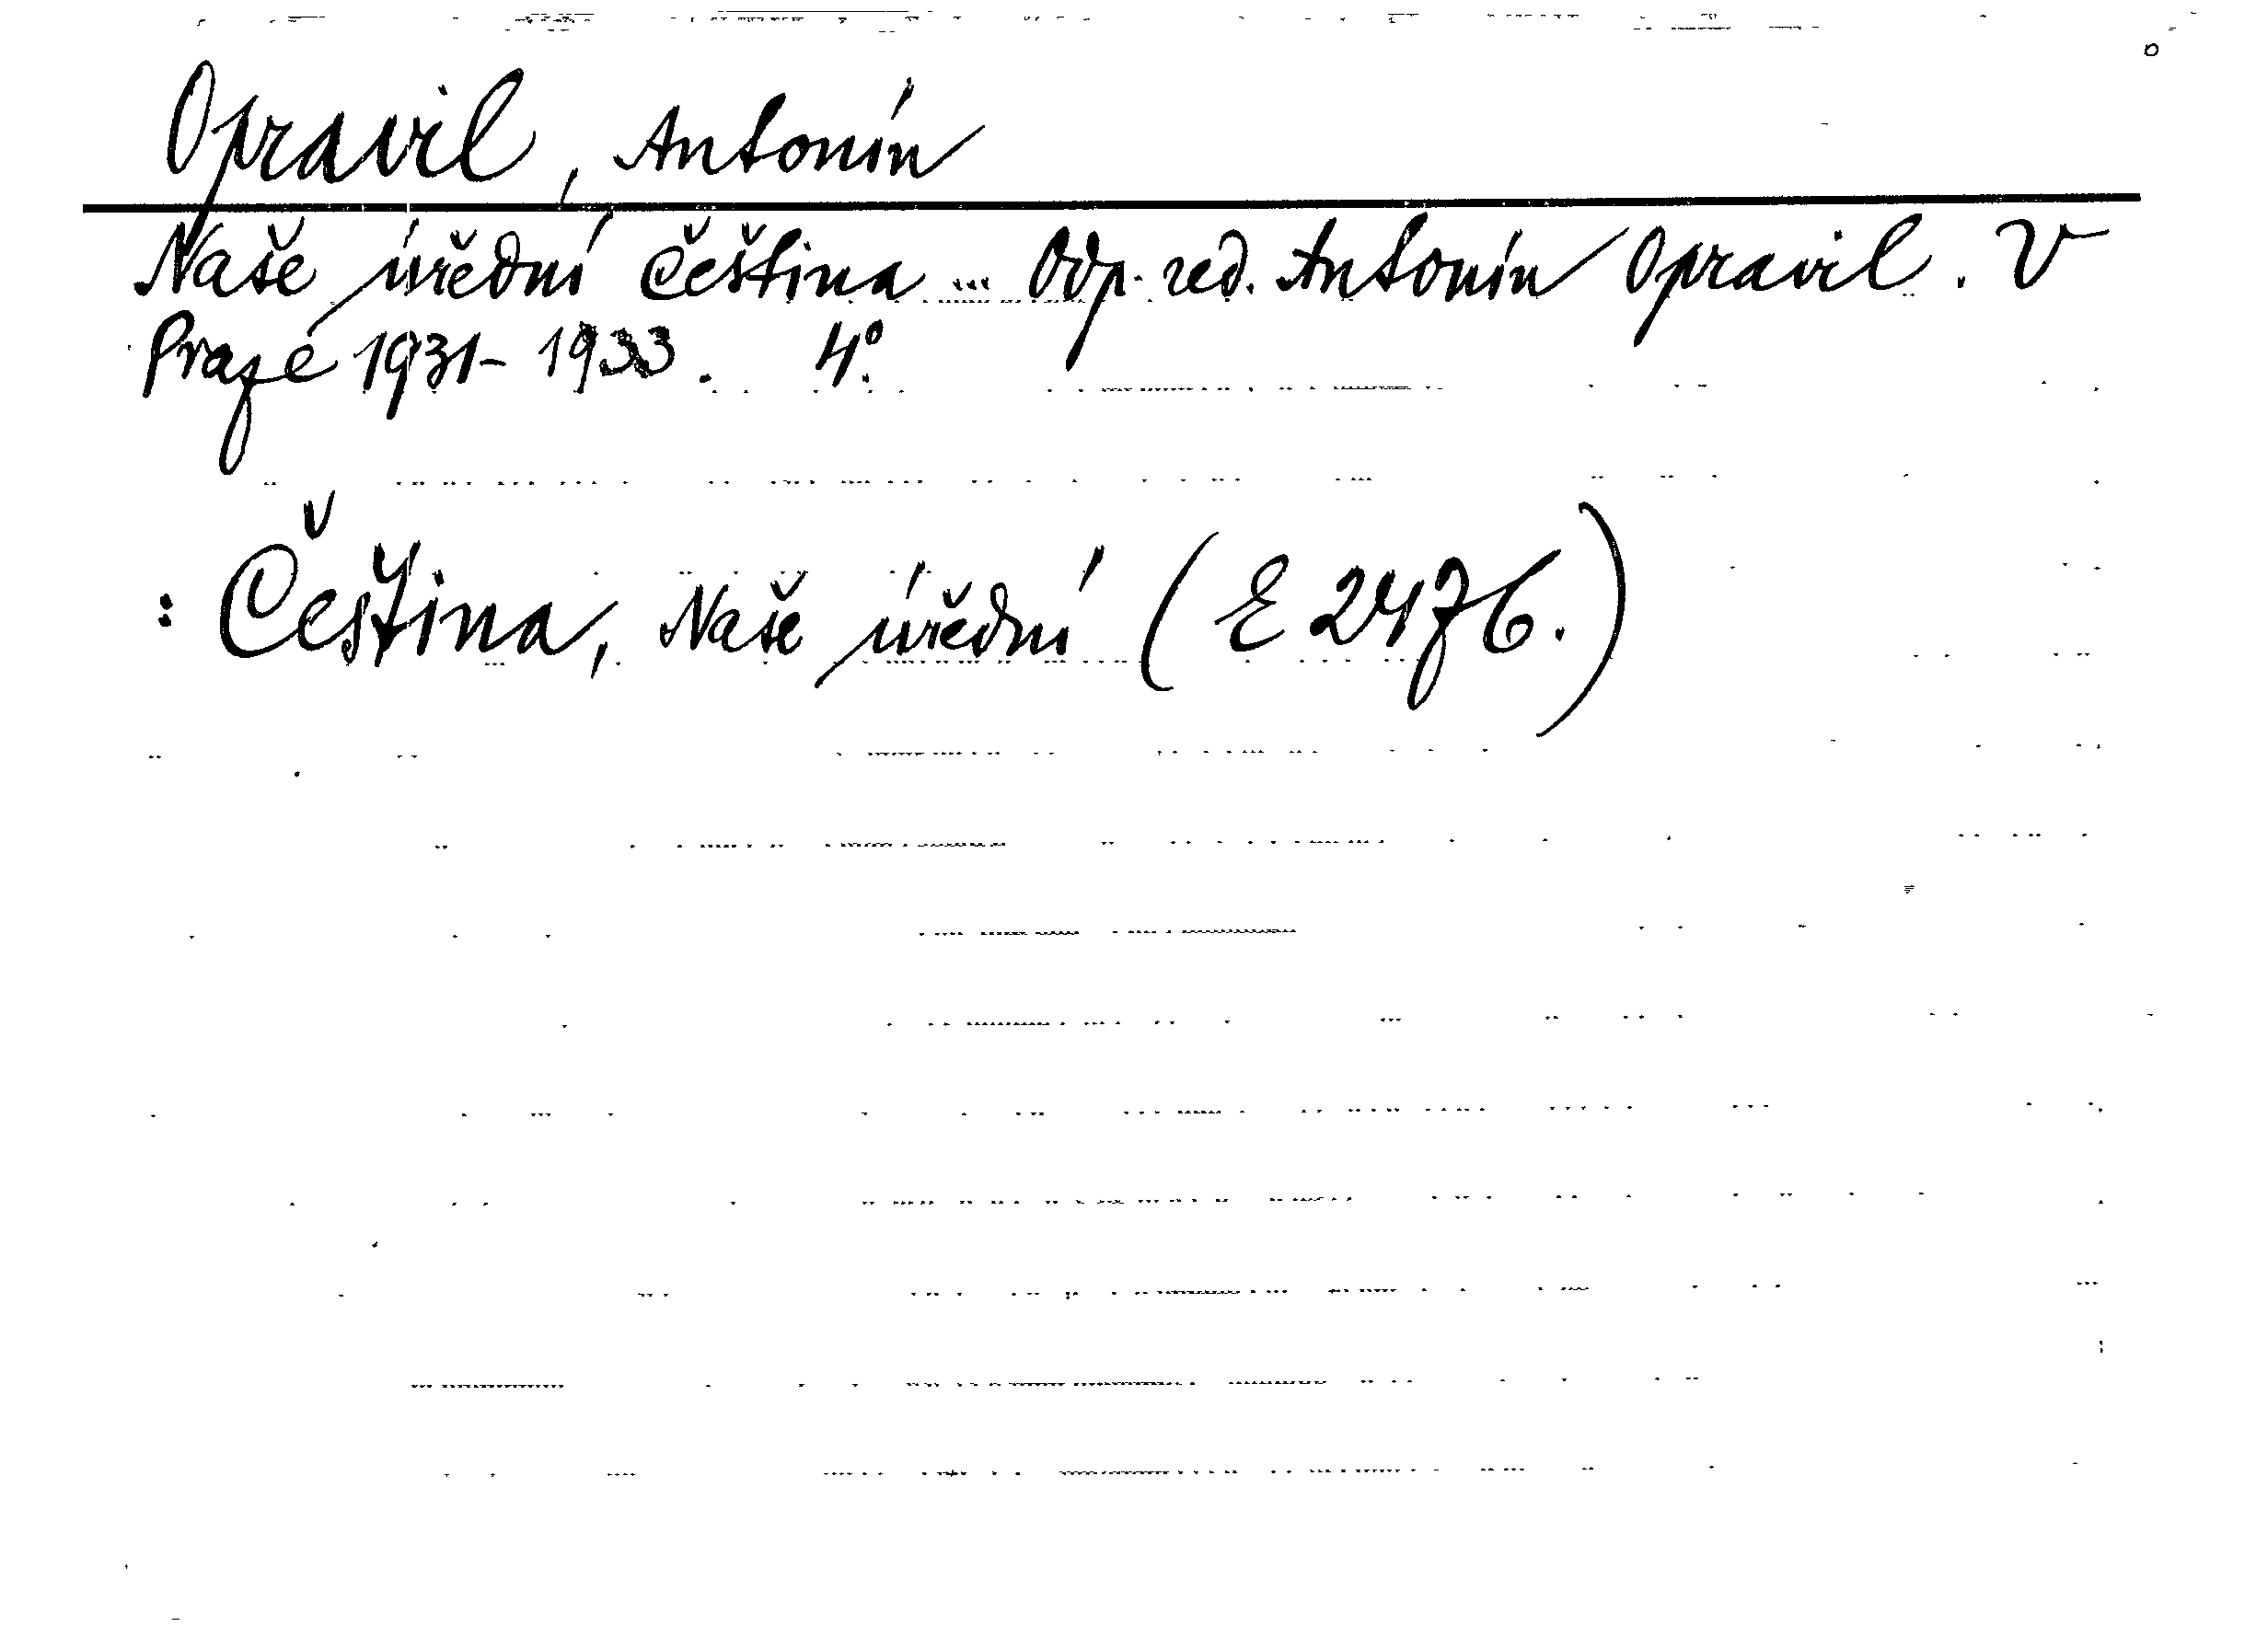 Opravil, Antonín
Naše úřední čeština ... Odp. red. Antonín Opravil. V
Praze 1931-1933. 4°.
: Čeština, Naše úřední (E 2476.)